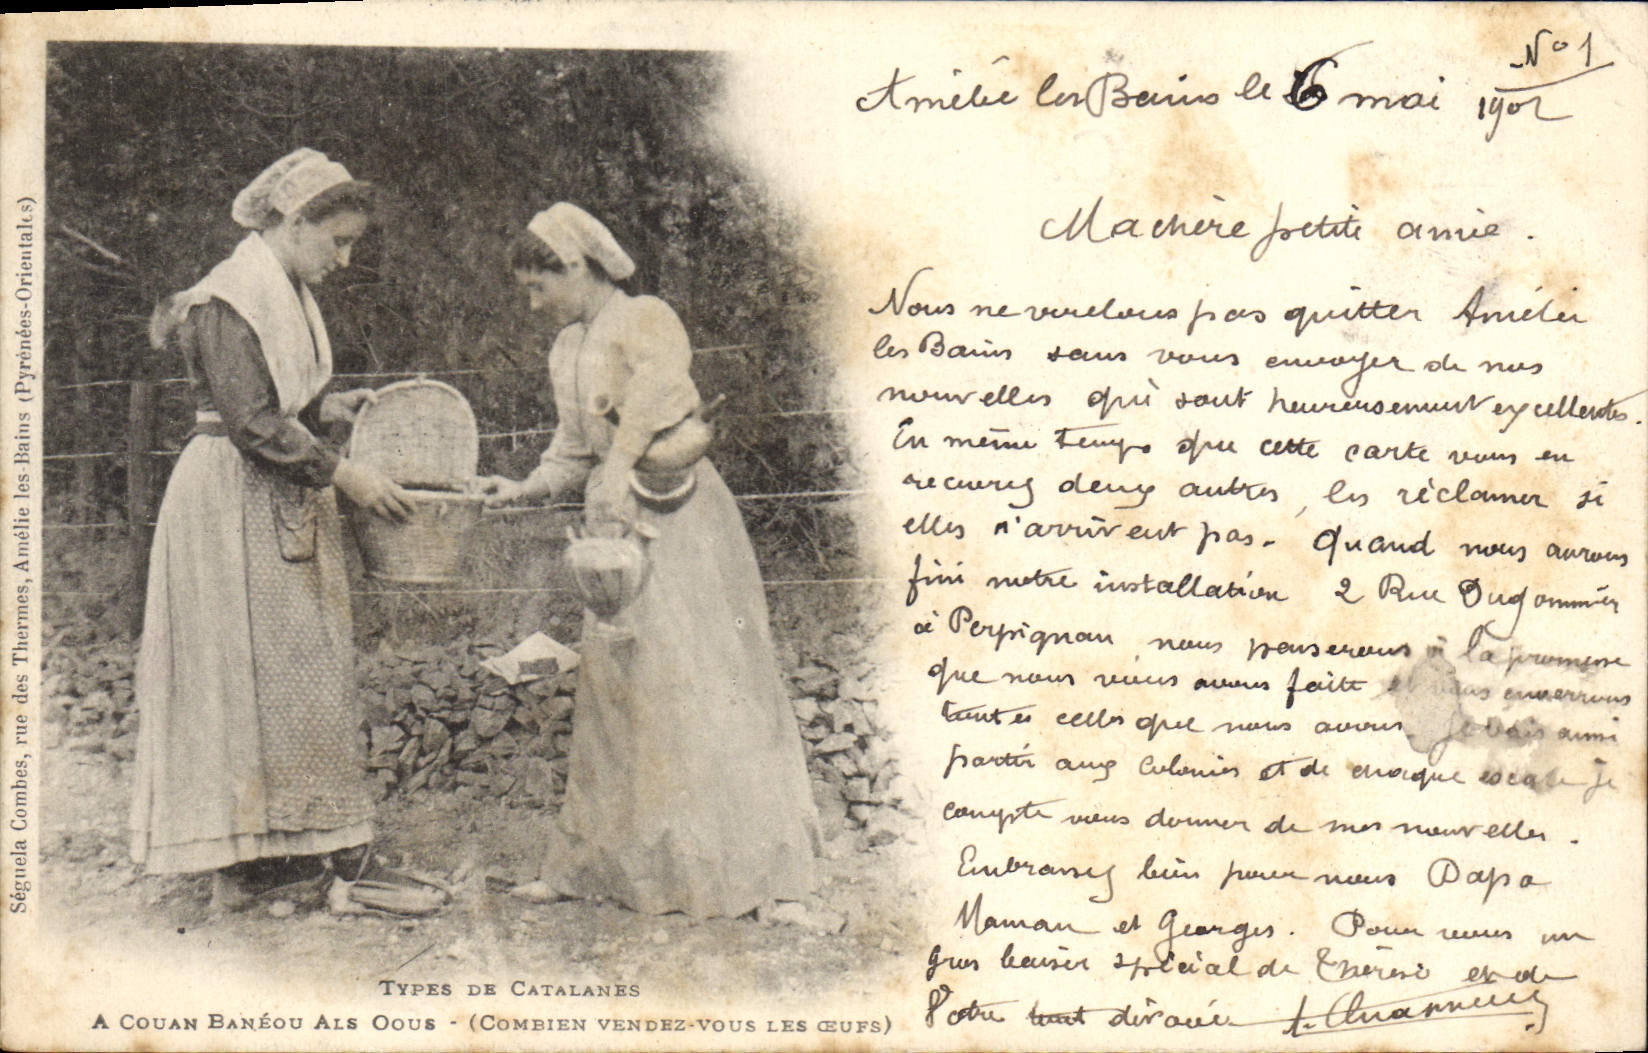 Nº 1
Amélie les Bains le 6 mai 1902
Ma chère petite amie.
Nous ne voulons pas quitter Amélie
les Bains sans vous envoyer de nos
nouvelles qui sont heureusement excellentes.
En même temps que cette carte vous en
recevrez deux autres, les réclamer si
elles n'arrivent pas. Quand nous aurons
fini notre installation 2 Rue Dugommier
à Perpignan nous penserons à la promesse
que nous vous avons faite et vous enverrons
toutes celles que nous avons. Je vais aussi
partir aux Colonies et de chaque escale je
compte vous donner de mes nouvelles.
Embrassez bien pour nous Papa
Maman et Georges. Pour vous un
gros baiser spécial de Thérèse et de
Votre tout dévoué
Séguela Combes, rue des Thermes, Amélie les-Bains (Pyrénées-Orientales)
TYPES DE CATALANES
A COUAN BANÉOU ALS OOUS - (COMBIEN VENDEZ-VOUS LES ŒUFS)